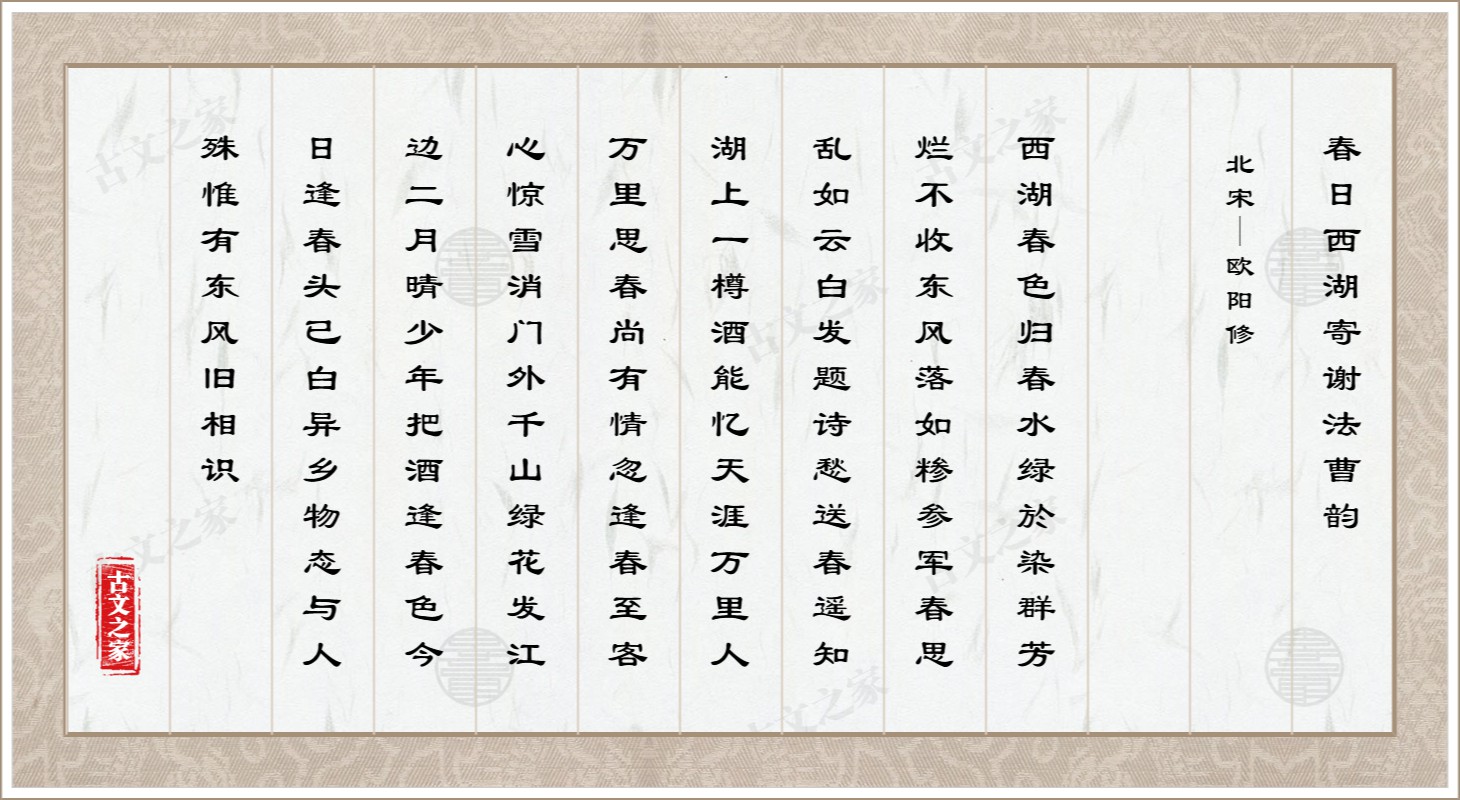 春日西湖寄谢法曹韵
北宋—欧阳修
西湖春色归春水绿於染群芳
烂不收东风落如糁参军春思
乱如云白发题诗愁送春遥知
湖上一樽酒能忆天涯万里人
万里思春尚有情忽逢春至客
心惊雪消门外千山绿花发江
边二月晴少年把酒逢春色今
日逢春头已白异乡物态与人
殊惟有东风旧相识
古文之家